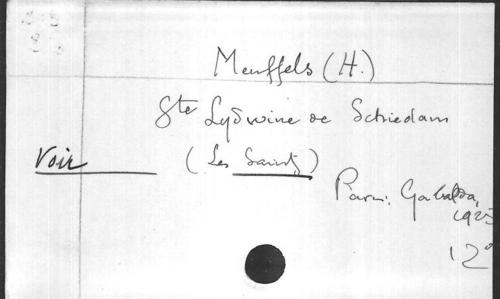 Meuffels (H.)
Ste Lydwine de Schiedam
Voir (Les Saints)
Paris: Gabalda,
1925
12°